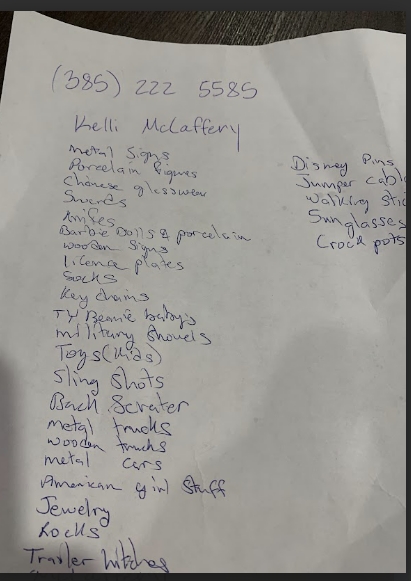 (385) 222 5585
Kelli McLaffery
Metal Signs
Porcelain figures
Chinese glasswear
Swords
Knifes
Barbie Dolls & porcelain
wooden Signs
licence plates
Socks
Key chains
TY Beanie baby's
military Shovels
Toys (Kids)
Sling Shots
Back Scrater
metal trucks
wooden trucks
metal cars
American girl Stuff
Jewelry
Locks
Trailer hitches
Disney Pins
Jumper
Walking
Sunglasses
Crock pots